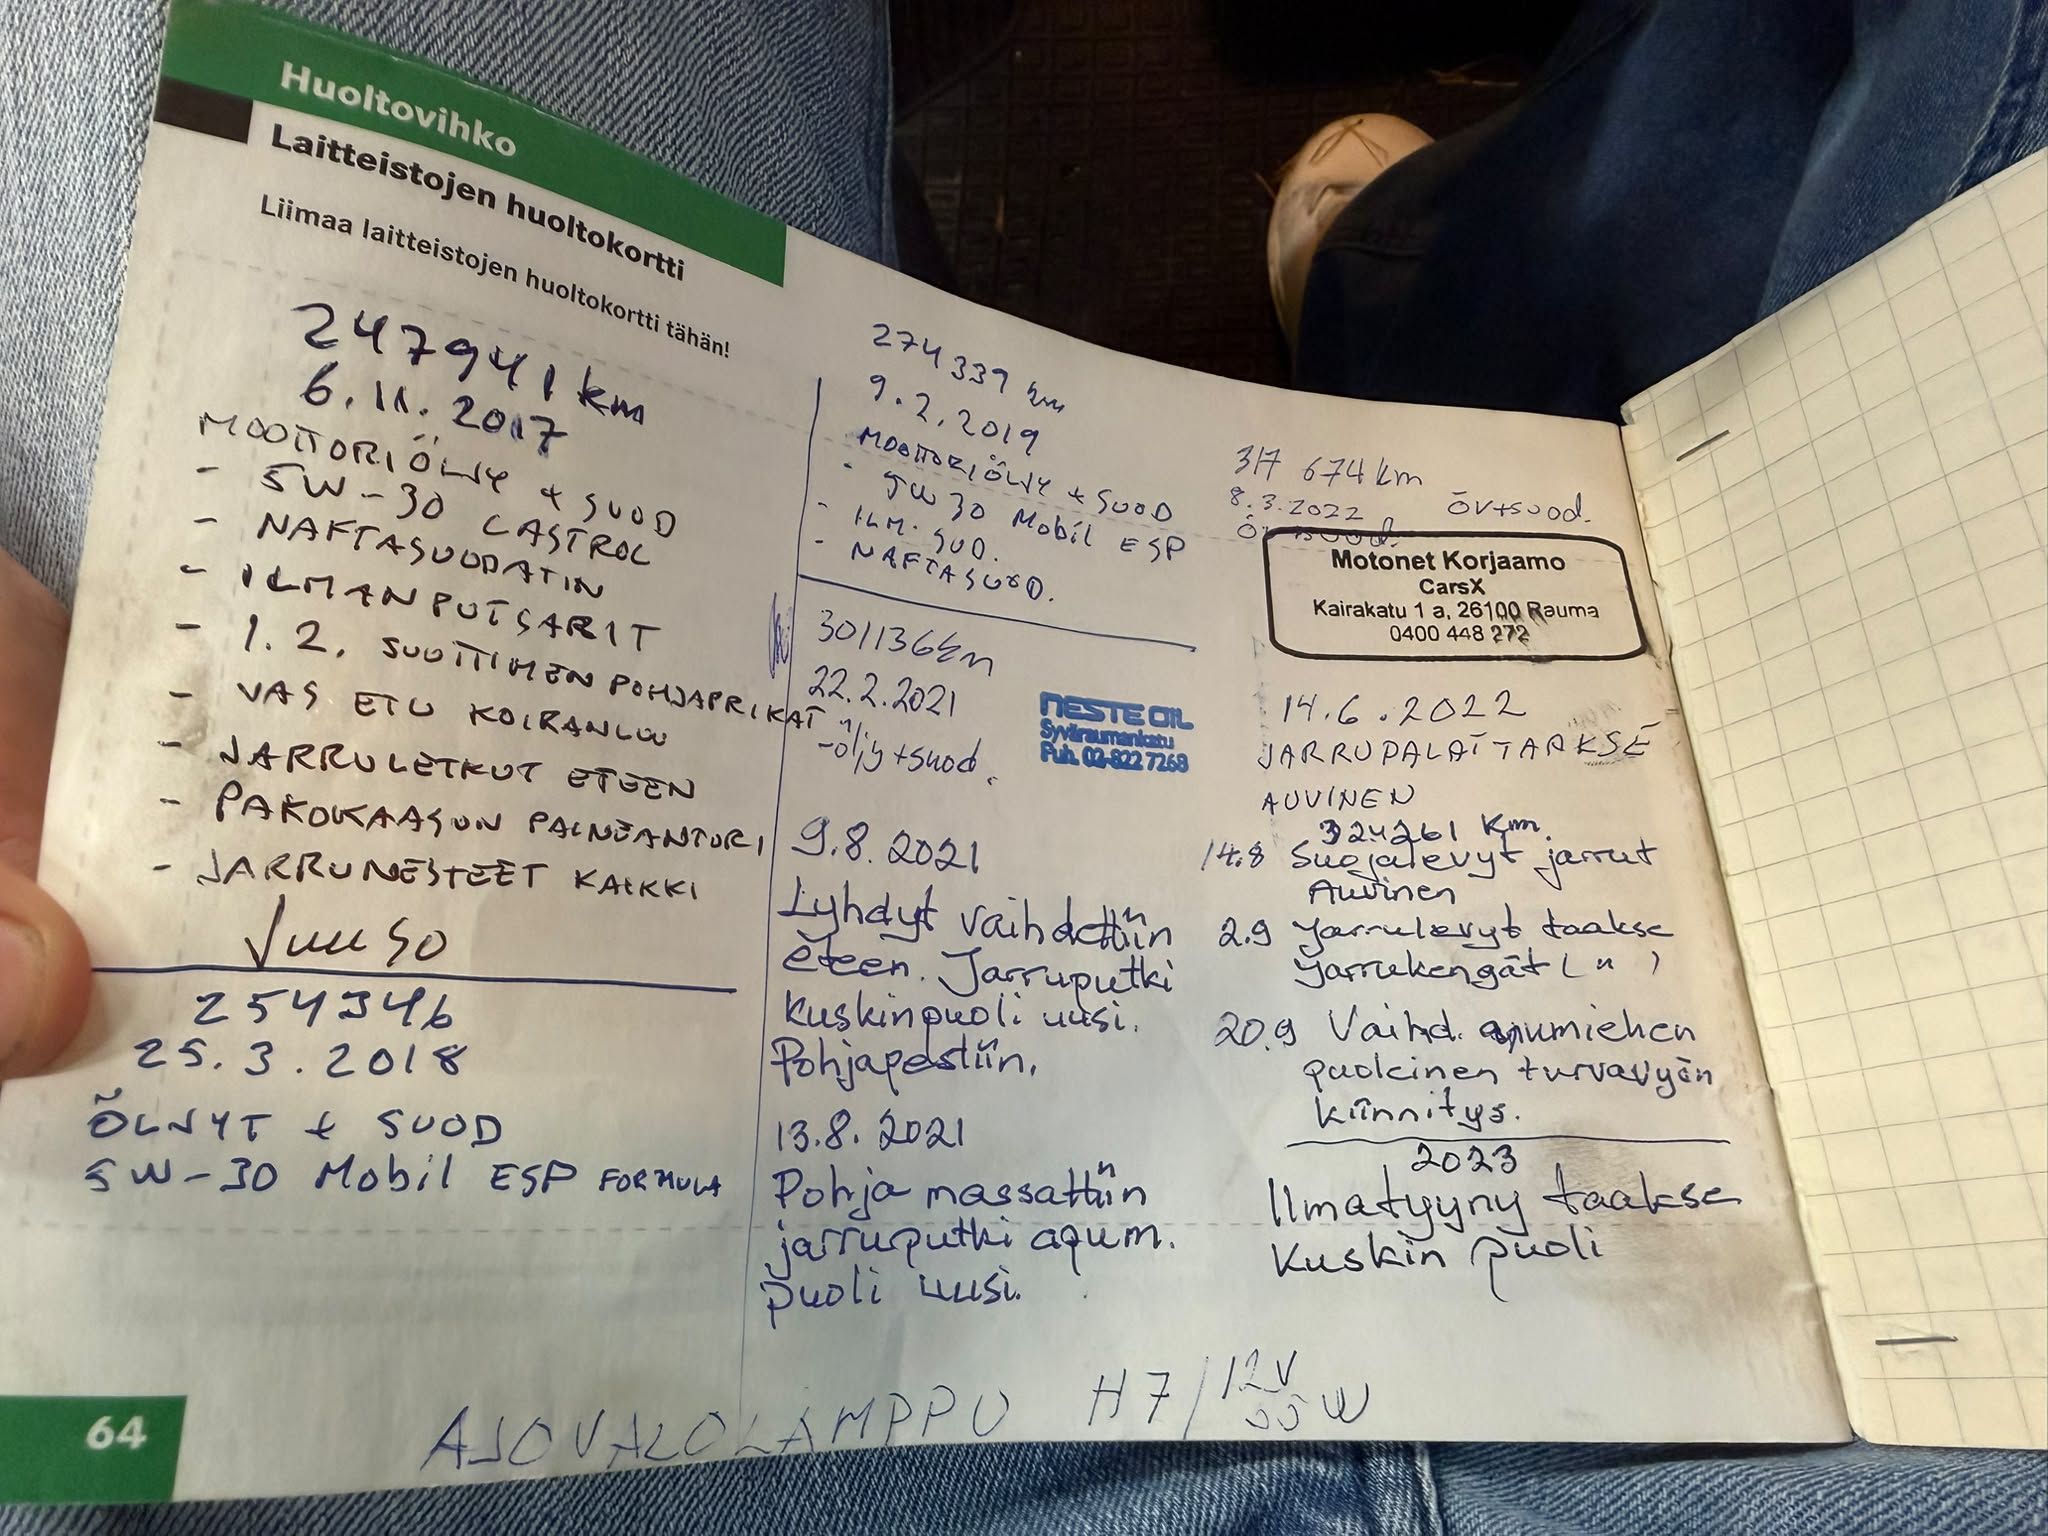 Huoltovihko
Laitteistojen huoltokortti
Liimaa laitteistojen huoltokortti tähän!
247941 km
6.11.2017
MOOTTORIÖLJY + SUOD
- 5W-30 CASTROL
- NAFTASUODATIN
- ILMANPUTSARIT
- 1. 2. SUOTTIMEN POHJAPRIKAT
- VAS ETU KOIRANLUU
- JARRULETKUT ETEEN
- PAKOKAASUN PAINEANTURI
- JARRUNESTEET KAIKKI
Juuso
254346
25.3.2018
ÖLJYT + SUOD
5W-30 Mobil ESP FORMULA
274339 km
9.2.2019
MOOTTORIÖLJY + SUOD
- 5W 30 Mobil ESP
- ILM. SUO.
- NAFTASUOD.
301136km
22.2.2021
-öljy+suod.
NESTE OIL
Syväraumankatu
Puh. 02-822 7268
9.8.2021
Lyhdyt vaihdettiin
eteen. Jarruputki
kuskinpuoli uusi.
Pohjapestiin.
13.8.2021
Pohja massattiin
jarruputki apum.
puoli uusi.
317 674 km
8.3.2022 öv+suod.
Motonet Korjaamo
CarsX
Kairakatu 1 a, 26100 Rauma
0400 448 272
14.6.2022
JARRUPALAT TAAKSE
AUVINEN
324261 km.
14.8 Suojalevyt jarrut
Auvinen
2.9 Jarrulevyt taakse
Jarrukengät ( " )
20.9 Vaihd. apumiehen
puoleinen turvavyön
kiinnitys.
2023
Ilmatyyny taakse
Kuskin puoli
AJOVALOLAMPPU H7/12V
55W
64